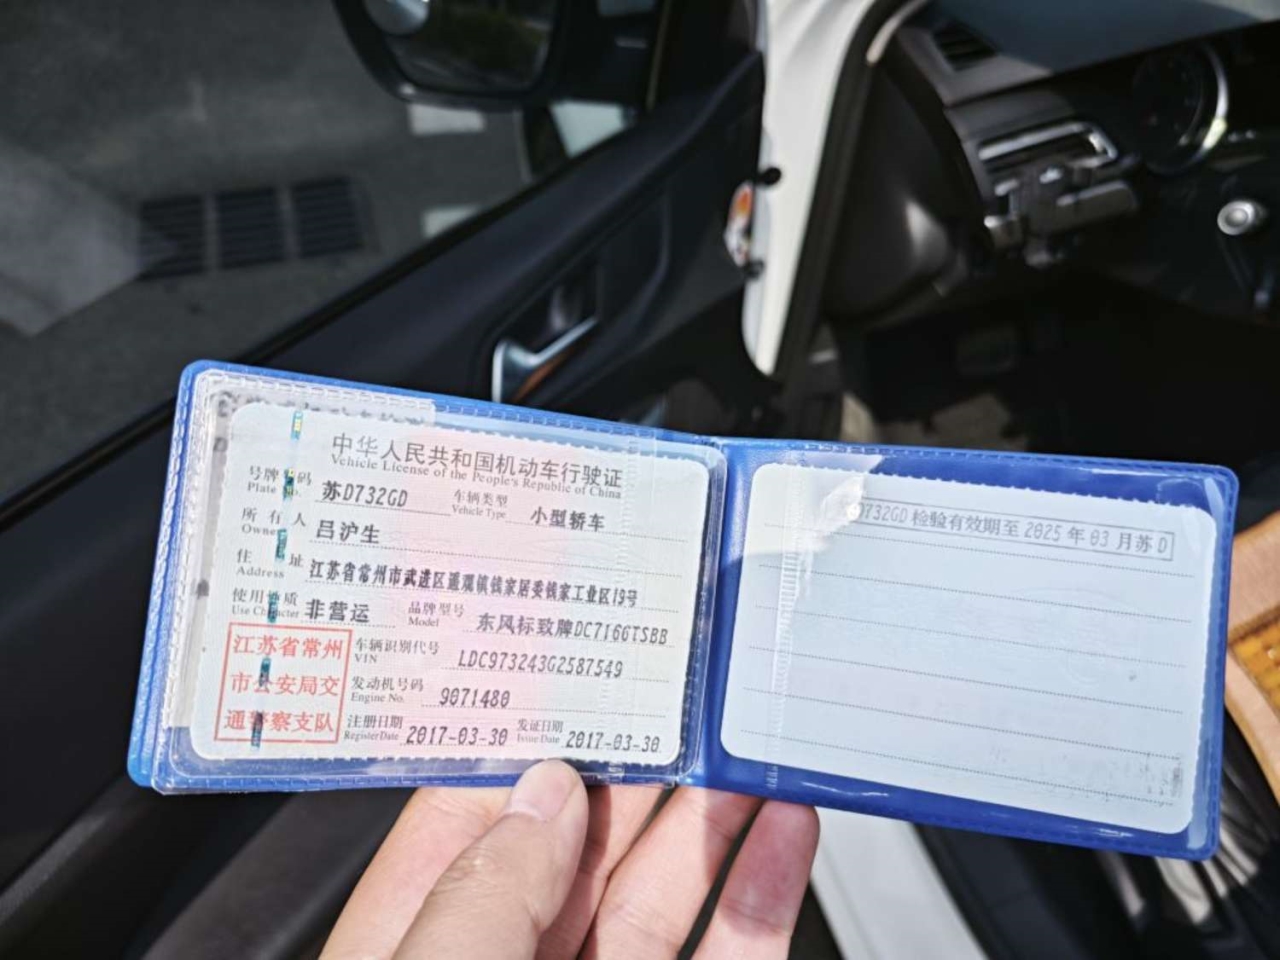 中华人民共和国机动车行驶证
Vehicle License of the People's Republic of China
号牌 码 苏D732GD 车辆类型 小型轿车
Plate No. Vehicle Type
所有人 吕沪生
Owner
住址 江苏省常州市武进区遥观镇钱家居委钱家工业区19号
Address
使用性质 非营运 品牌型号 东风标致牌DC7166TSBB
Use Character Model
江苏省常州
市公安局交
通警察支队
车辆识别代号 LDC973243G2587549
VIN
发动机号码 9071480
Engine No.
注册日期 2017-03-30 发证日期 2017-03-30
Register Date Issue Date
D732GD 检验有效期至 2025 年 03 月苏 D